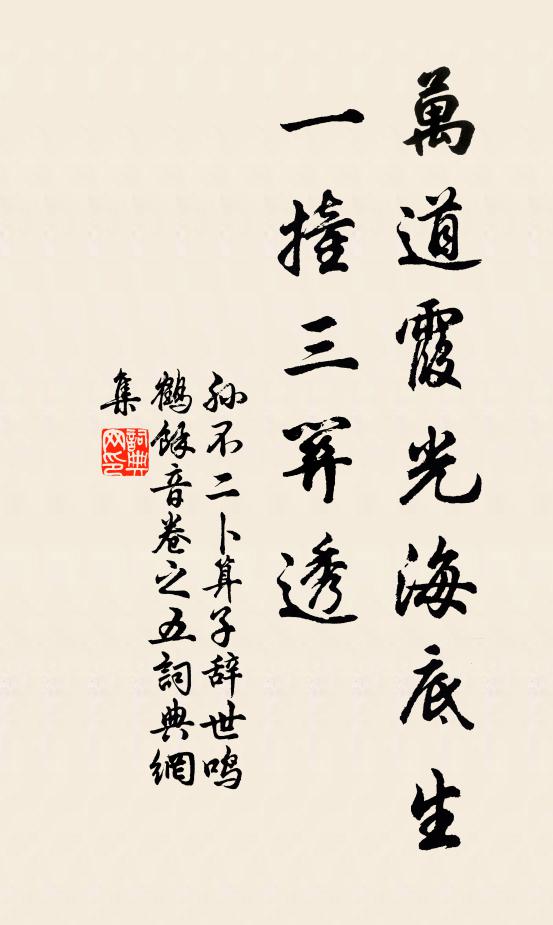 萬道霞光海底生
一撞三关透
孙不二卜算子辞世鸣
鶴餘音卷之五詞典網
集
詞典
网印